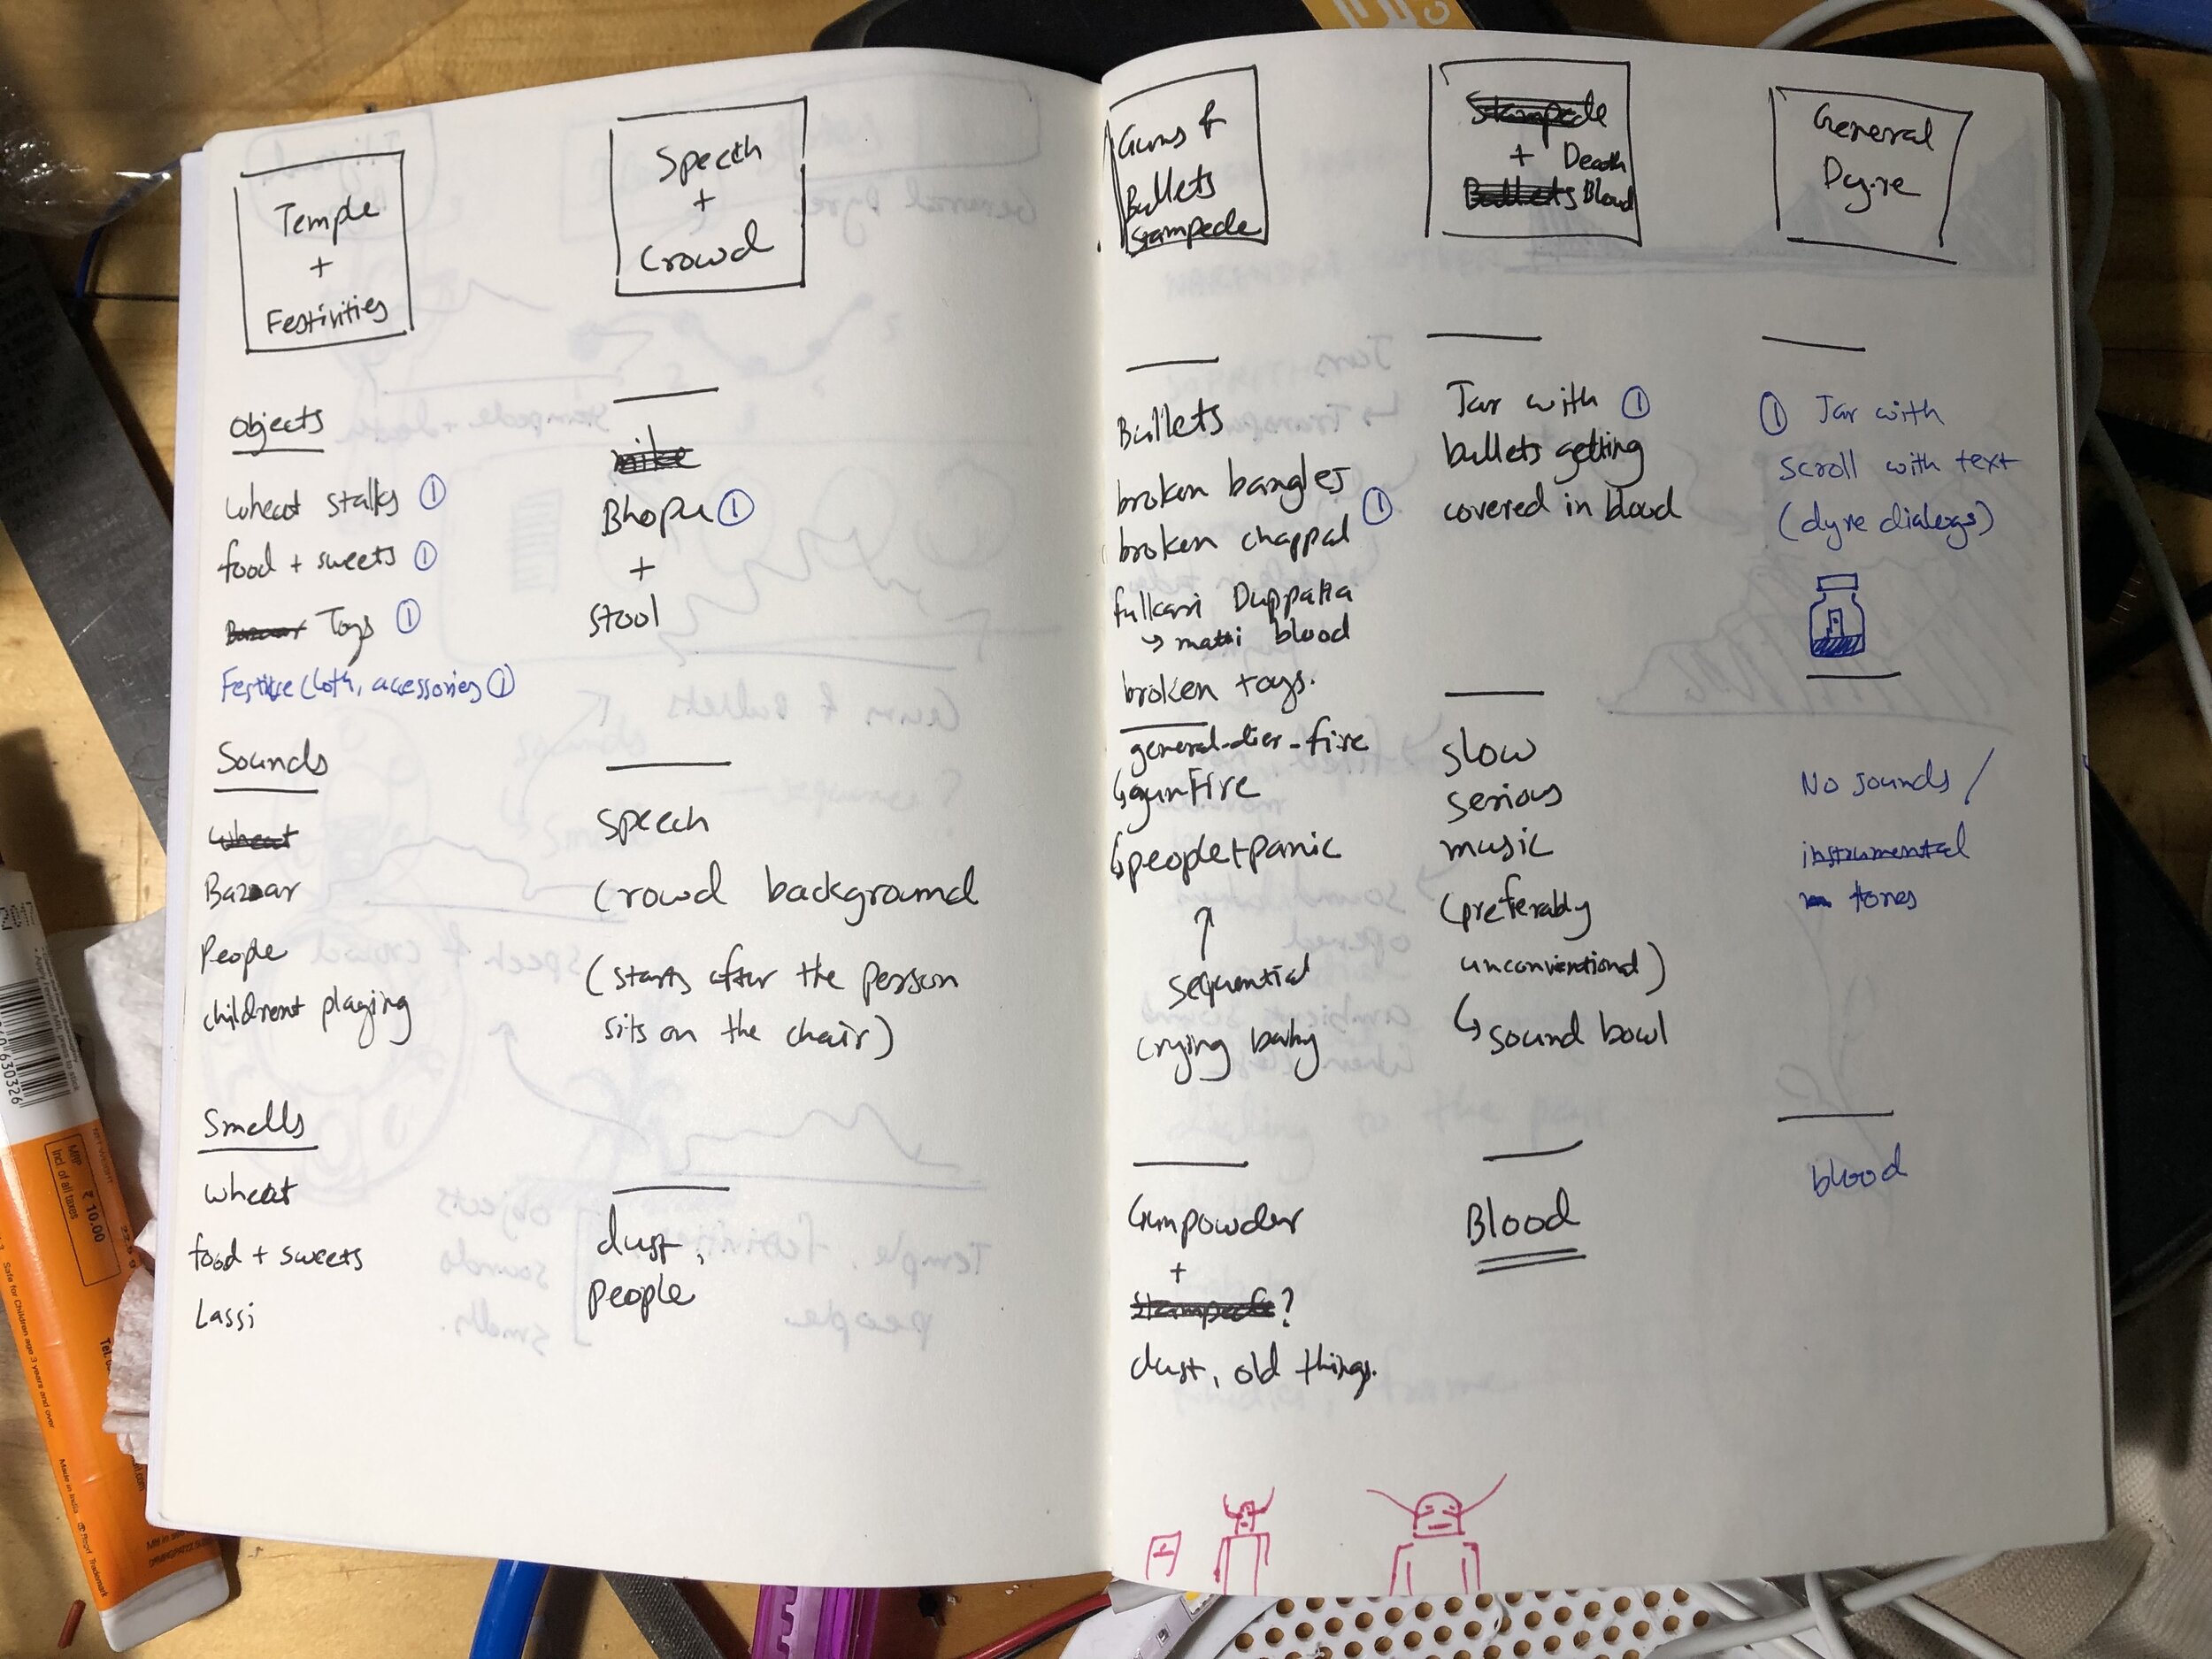 Temple
+
Festivities
Objects
wheat stalks ①
food + sweets ①
Toys ①
Festive cloth, acessories ①
Sounds
wheat
Bazaar
People
childrent playing
Smells
wheat
food + sweets
Lassi
Speech
+
Crowd
mike
Bhopu ①
+
stool
speech
Crowd background
(starts after the person
sits on the chair)
dust,
people
Guns &
Bullets
Stampede
Bullets
broken bangles
broken chappal ①
fullkari Duppatta
↳ matti blood
broken toys.
general-dier-fire
↳ gunfire
↳ people+panic
↑
sequential
crying baby
Gunpowder
+
Stampede?
dust, old things.
Stampede
+ Death
Bullets Blood
Jar with ①
bullets getting
covered in blood
slow
serious
music
(preferably
unconventional)
↳ sound bowl
Blood
General
Dyre
① Jar with
scroll with text
(dyre dialogs)
No sounds /
instrumental
tones
blood
MRP ₹ 10.00
Incl. of all taxes
Safe for Children age 3 years and over
Made in India